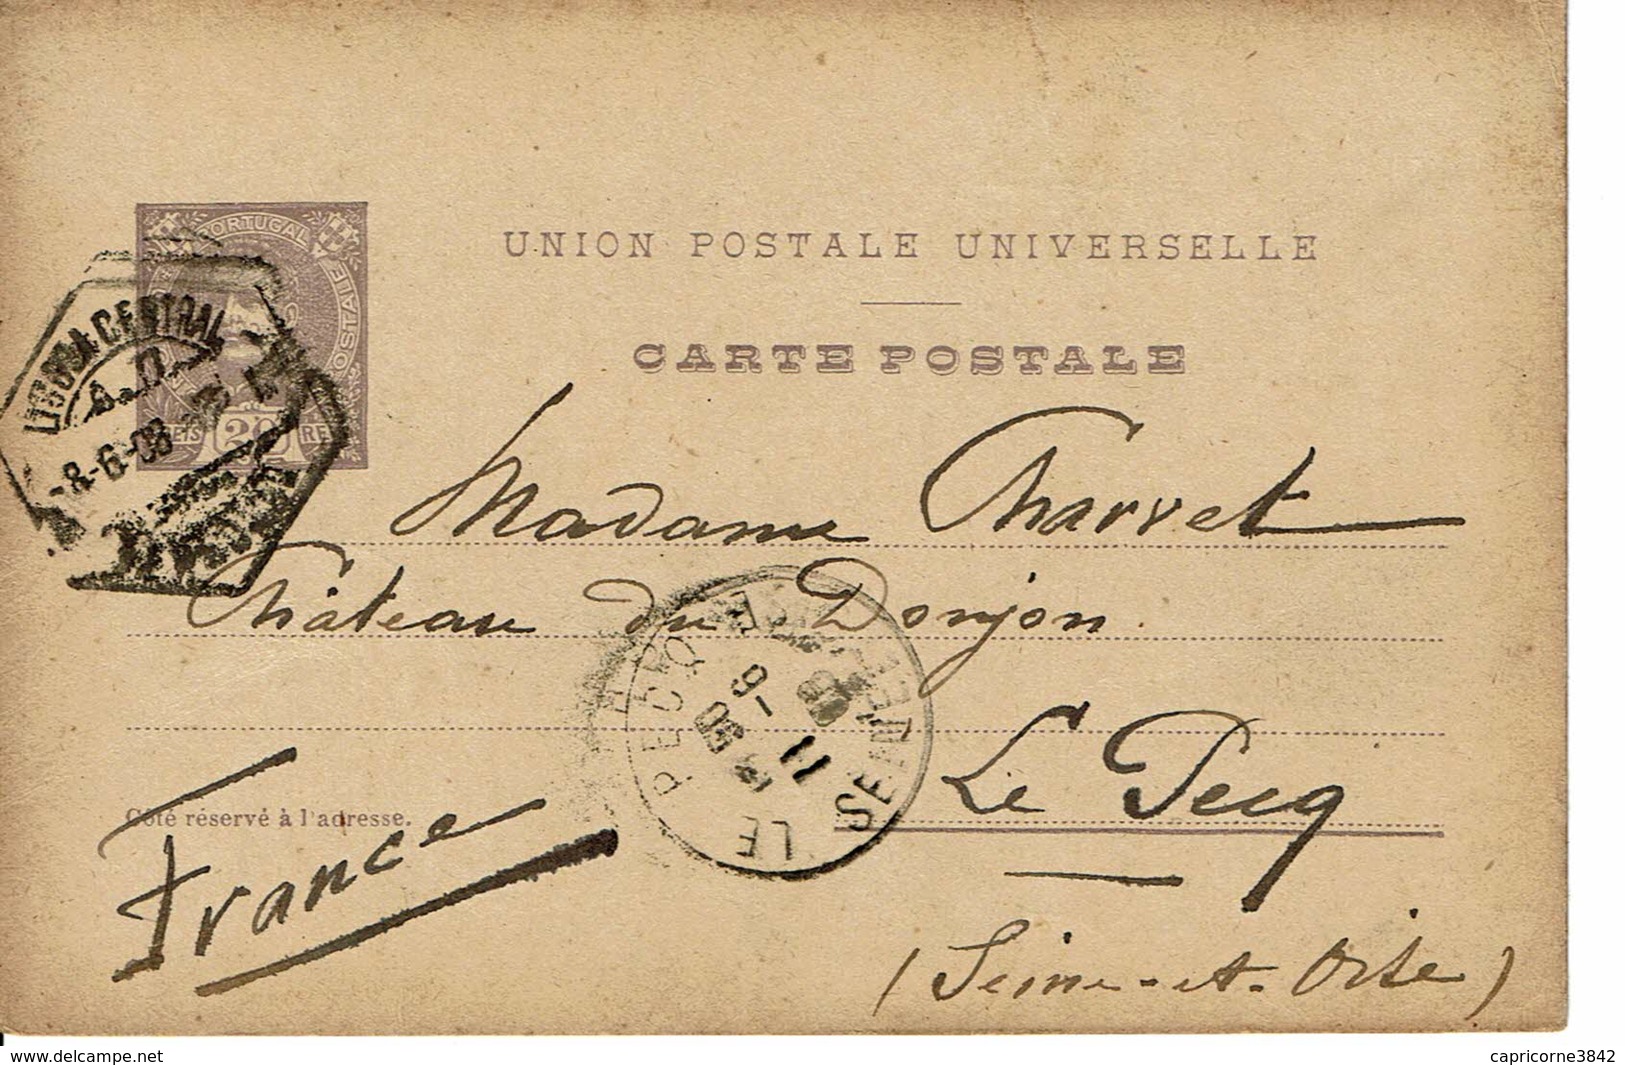 UNION POSTALE UNIVERSELLE
CARTE POSTALE
PORTUGAL
POSTAL
REIS 20 REIS
LISBOA CENTRAL
8-6-08
Madame Charvet
Château du Donjon
Le Pecq
(Seine-et-Oise)
Côté réservé à l'adresse.
France
LE PECQ SEINE-ET-OISE
11 -6
08
delcampe.net
capricorne3842